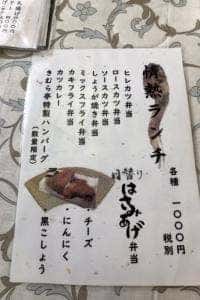 情熱ランチ
各種 一〇〇〇円
税別
ヒレカツ弁当
ロースカツ弁当
ソースカツ弁当
しょうが焼き弁当
ミックスフライ弁当
カキフライ弁当
カツカレー
きむら亭特製ハンバーグ
(数量限定)
日替り
はさみあげ
弁当
チーズ
・にんにく
黒こしょう